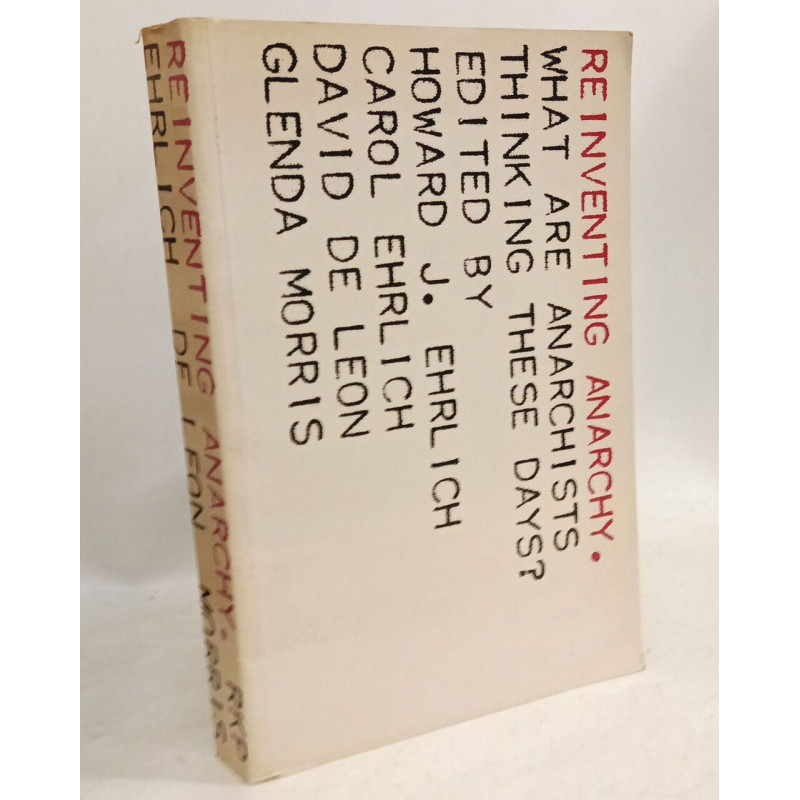 REINVENTING ANARCHY.
WHAT ARE ANARCHISTS
THINKING THESE DAYS?
EDITED BY
HOWARD J. EHRLICH
CAROL EHRLICH
DAVID DE LEON
GLENDA MORRIS
REINVENTING ANARCHY. RKP
EHRLICH DE LEON MORRIS